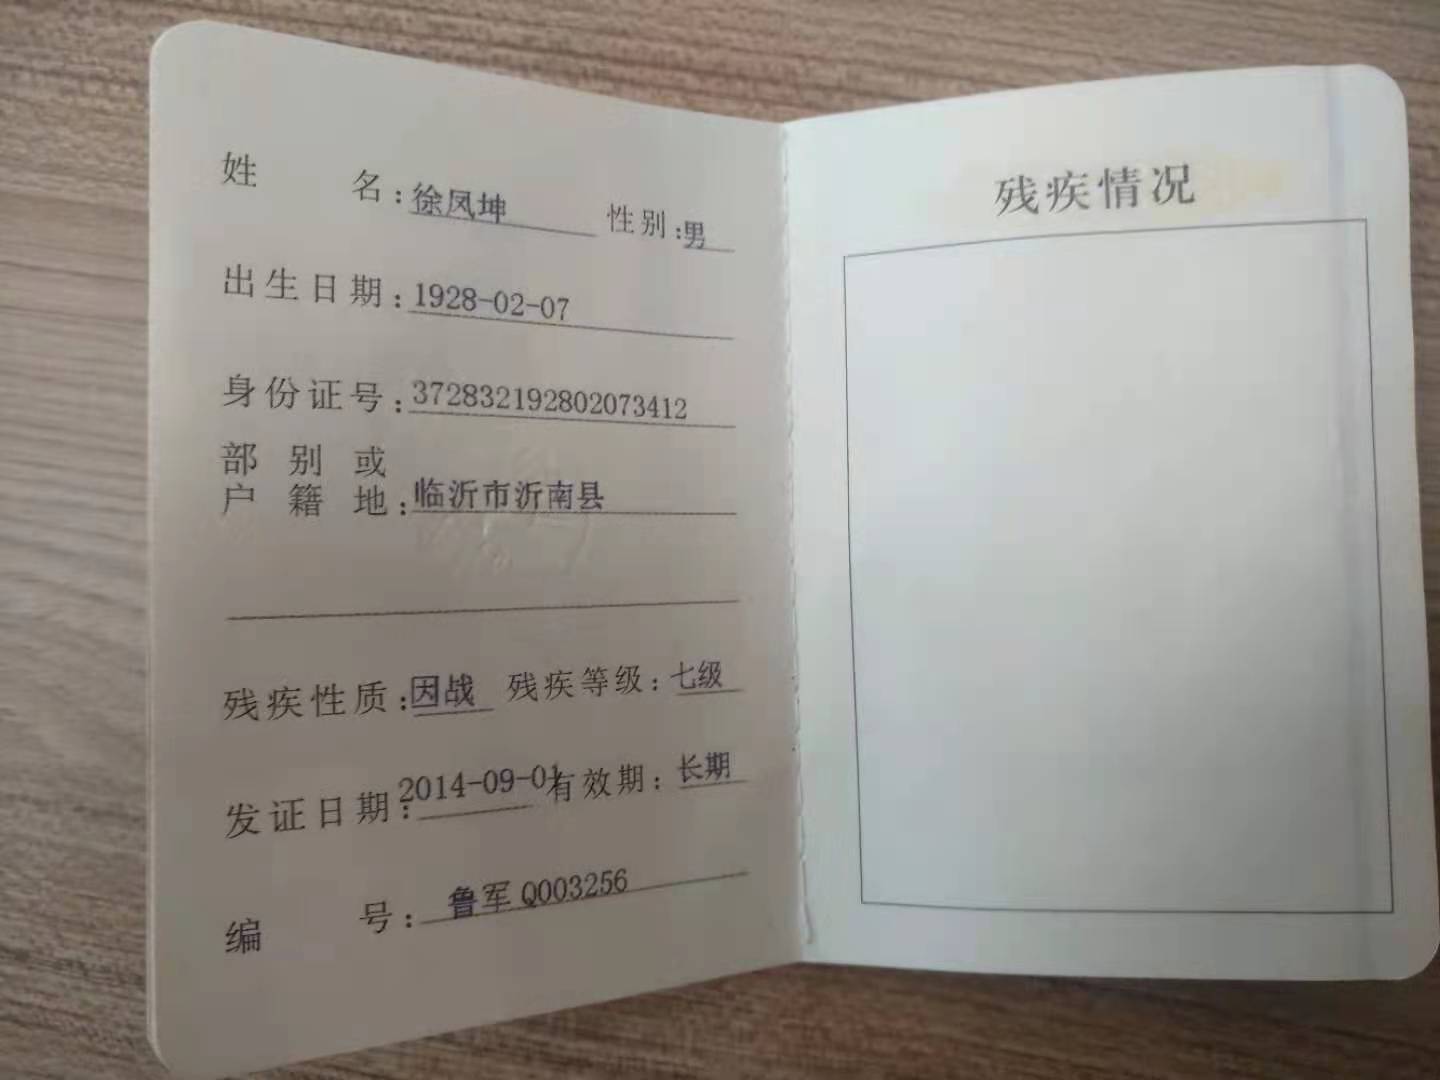 姓名:徐凤坤 性别:男
出生日期:1928-02-07
身份证号:372832192802073412
部别或
户籍地:临沂市沂南县
残疾性质:因战 残疾等级:七级
发证日期:2014-09-01 有效期:长期
编号:鲁军Q003256
残疾情况